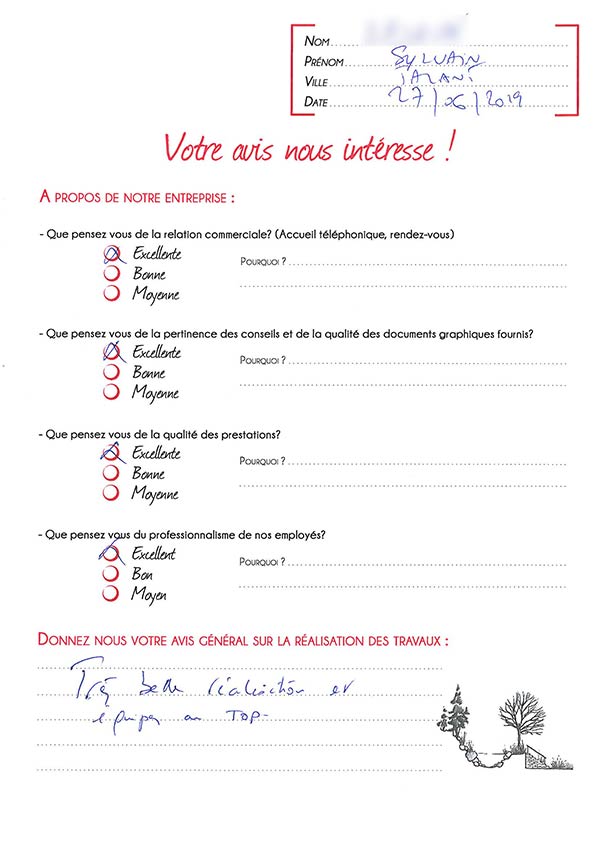 NOM
PRÉNOM SYLVAIN
VILLE
DATE 27/06/2019
Votre avis nous intéresse !
A PROPOS DE NOTRE ENTREPRISE :
- Que pensez vous de la relation commerciale? (Accueil téléphonique, rendez-vous)
Excellente POURQUOI ?
Bonne
Moyenne
- Que pensez vous de la pertinence des conseils et de la qualité des documents graphiques fournis?
Excellente POURQUOI ?
Bonne
Moyenne
- Que pensez vous de la qualité des prestations?
Excellente POURQUOI ?
Bonne
Moyenne
- Que pensez vous du professionnalisme de nos employés?
Excellent POURQUOI ?
Bon
Moyen
DONNEZ NOUS VOTRE AVIS GÉNÉRAL SUR LA RÉALISATION DES TRAVAUX :
Très belle réalisation et
équipe au TOP-